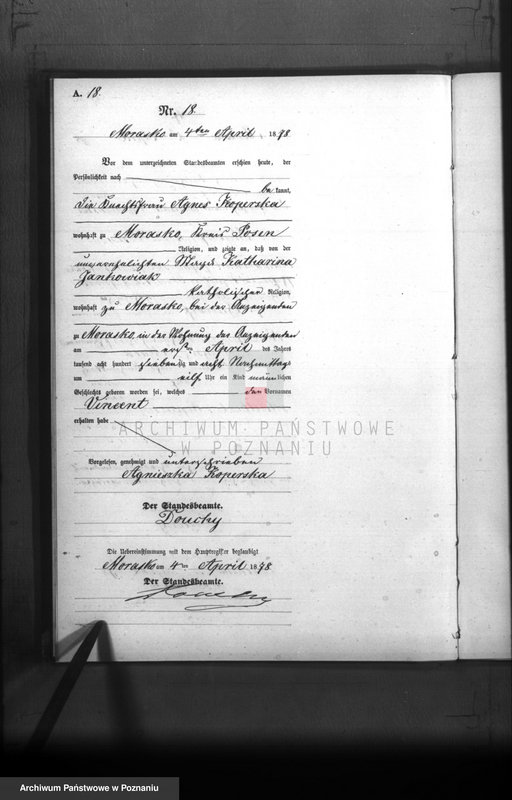 A. 18.
Nr. 18.
Morasko am 4ten April 1878
Vor dem unterzeichneten Standesbeamten erschien heute, der
Persönlichkeit nach
bekannt,
die Knechtsfrau Agnes Koperska
wohnhaft zu Morasko, Kreis Posen
Religion, und zeigte an, daß von der
unverehelichten Magd Katharina
Jankowiak
katholischer Religion,
wohnhaft zu Morasko, bei der Anzeigenden
zu Morasko, in der Wohnung der Anzeigenden
am ersten April des Jahres
tausend acht hundert siebenzig und acht Nachmittags
um eilf Uhr ein Kind männlichen
Geschlechts geboren worden sei, welches den Vornamen
Vincent
erhalten habe
ARCHIWUM PAŃSTWOWE
W POZNANIU
Vorgelesen, genehmigt und unterschrieben
Agnieszka Koperska
Der Standesbeamte.
Douchy
Die Uebereinstimmung mit dem Hauptregister beglaubigt
Morasko am 4ten April 1878
Der Standesbeamte.
Archiwum Państwowe w Poznaniu